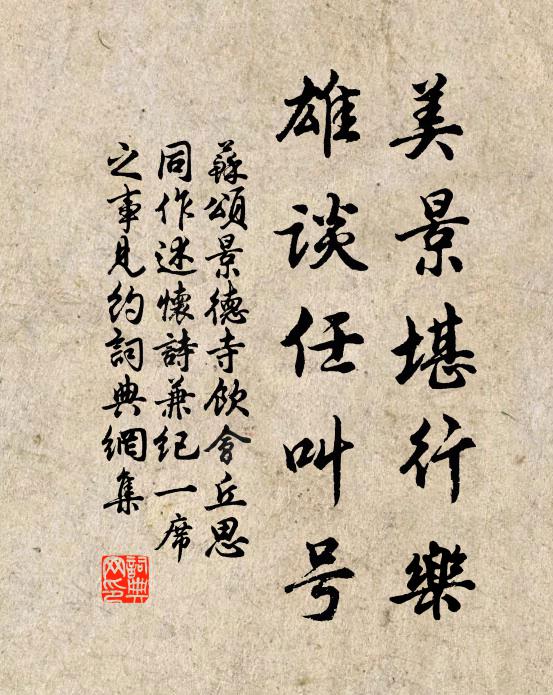 美景堪行樂
雄談任叫号
蘇頌景德寺飲會丘思
同作述懷詩兼紀一席
之事見約詞典網集
詞典
网印